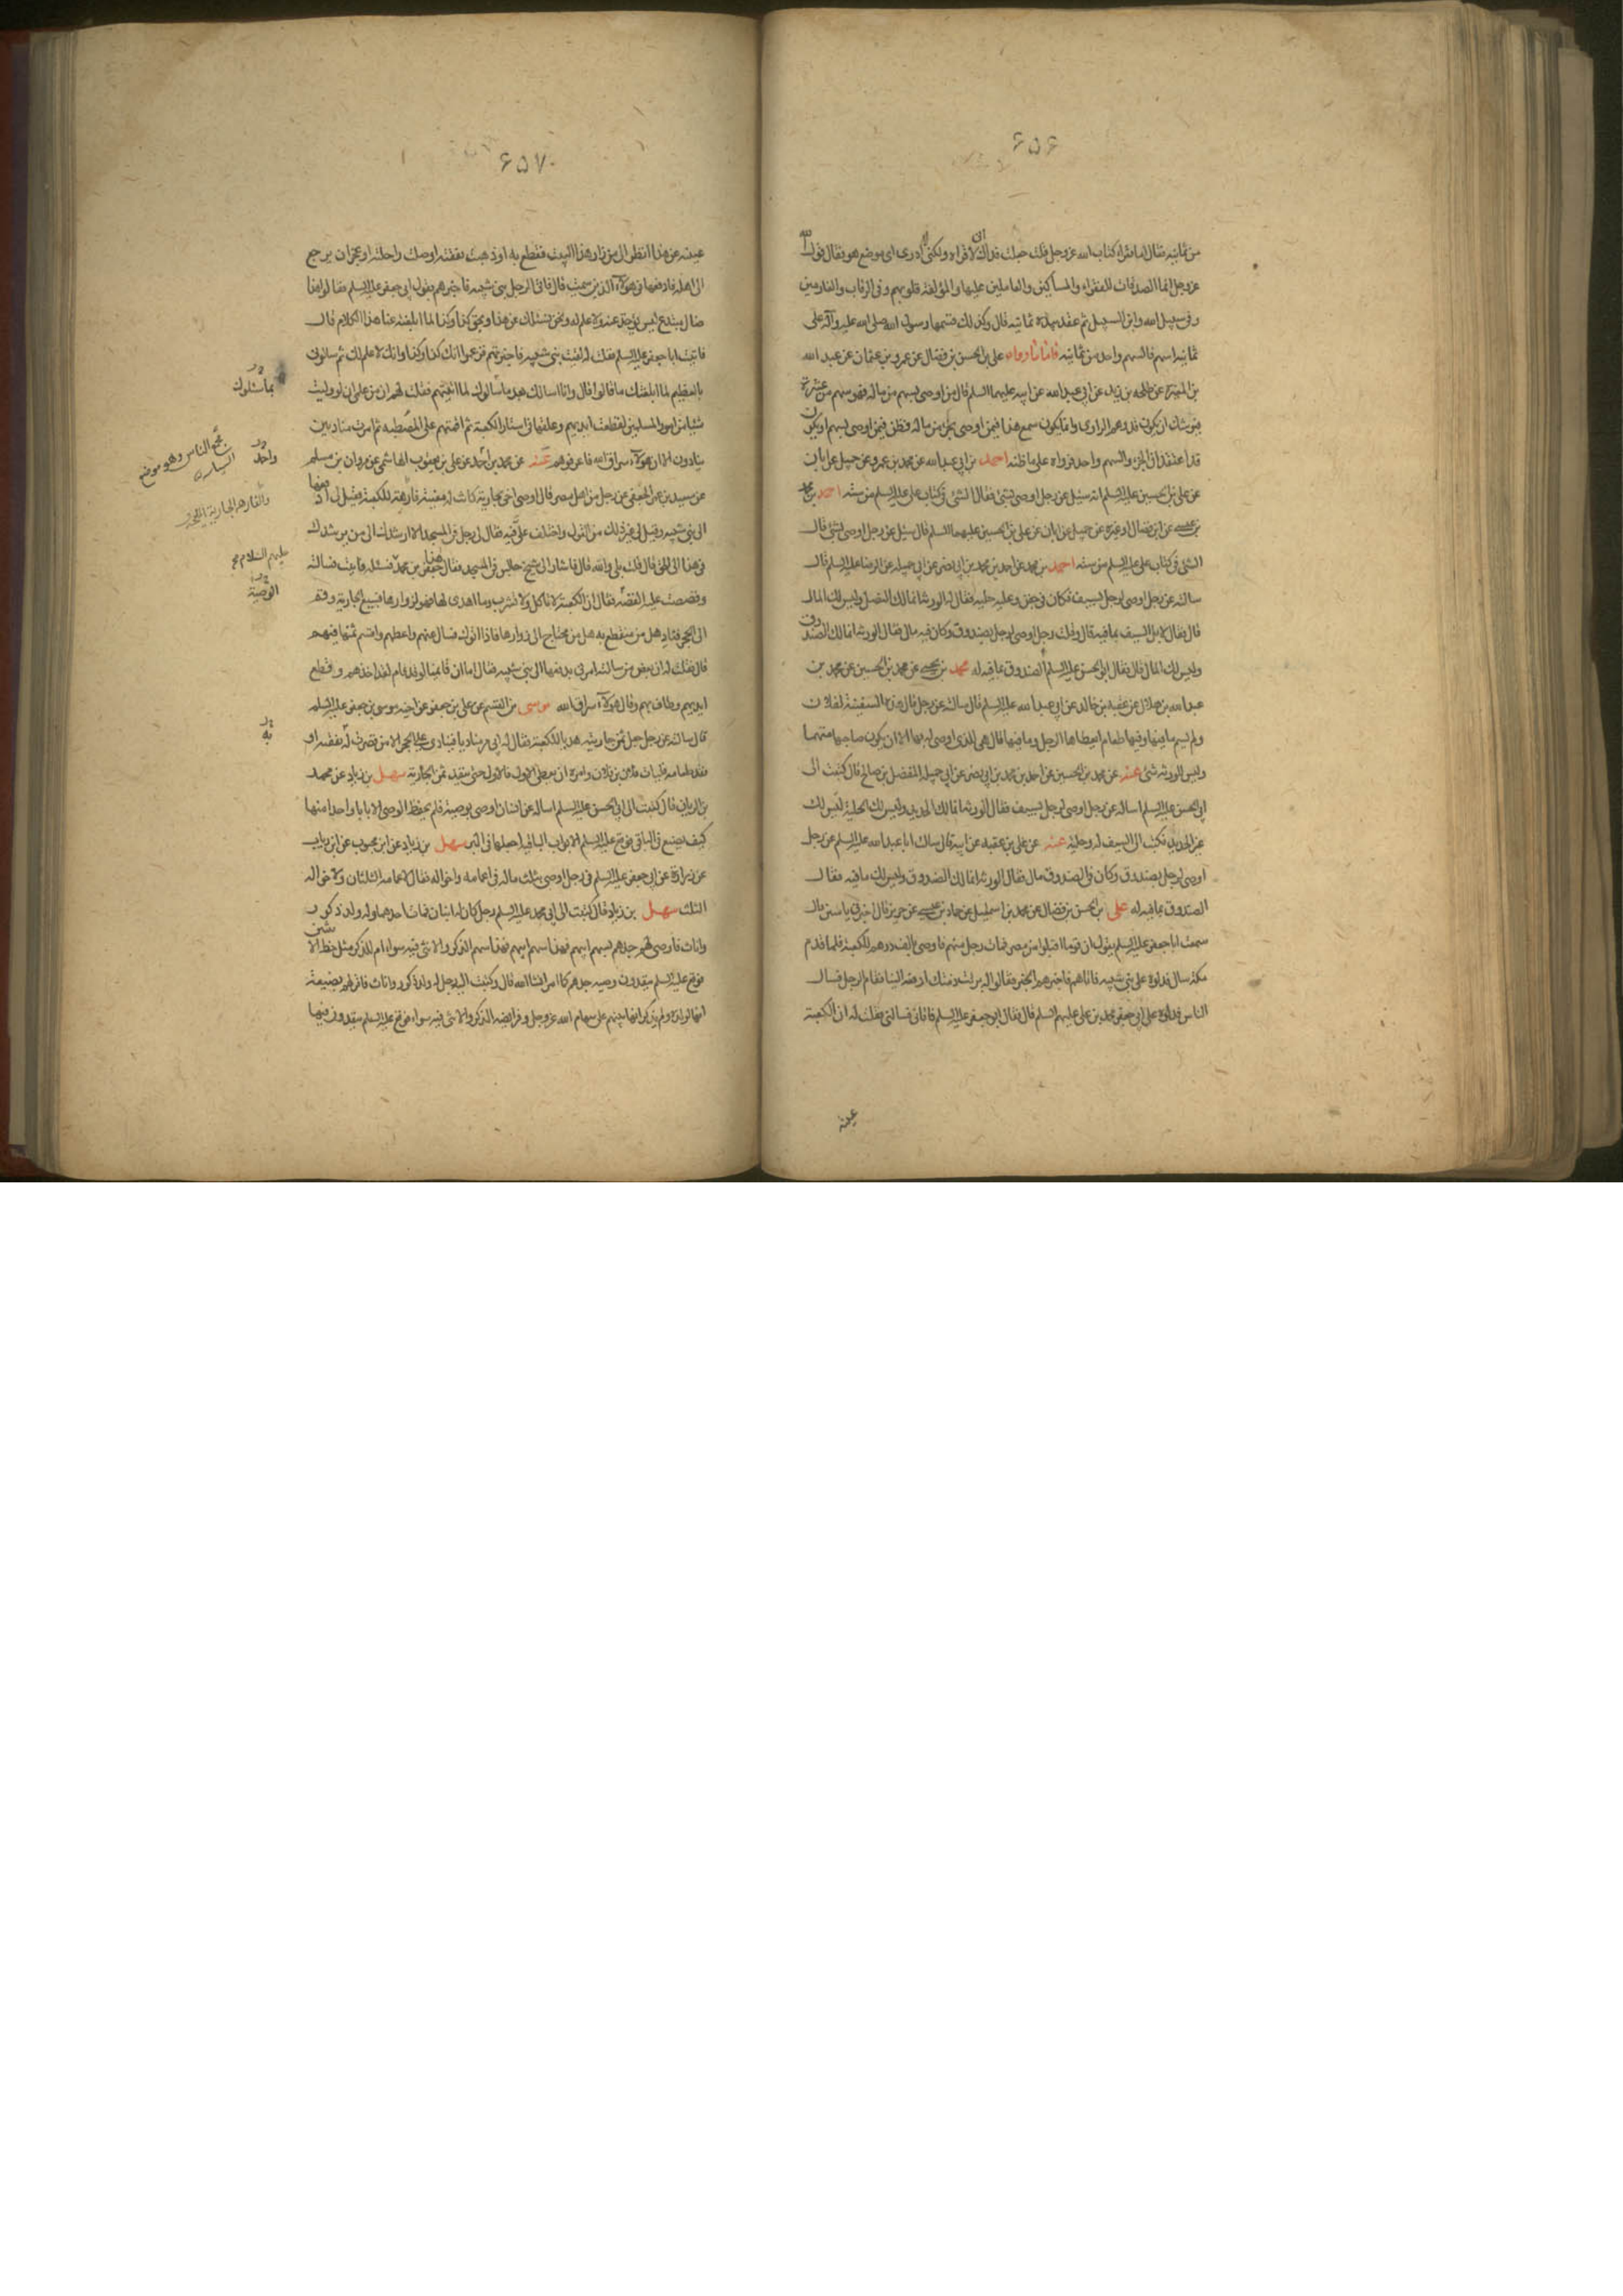 ۶۵۶
من ثمانيه فقال اما تقراء كتاب الله عز وجل قلت جعلت فداك انى لاقراه ولكنى لا ادرى اى موضع هو فقال قول الله
عز وجل انما الصدقات للفقراء والمساكين والعاملين عليها والمؤلفة قلوبهم وفى الرقاب والغارمين
وفى سبيل الله وابن السبيل ثم عقد بيده ثمانيه قال وكذلك قسمها رسول الله صلى الله عليه وآله على
ثمانيه اسهم فالسهم واحد من ثمانيه فاما ما رواه على بن الحسن بن فضال عن عمرو بن عثمان عن عبد الله
بن المغيرة عن طلحه بن زيد عن ابى عبد الله عن ابيه عليهما السلم قال من اوصى بسهم من ماله فهو سهم من عشرة
يوشك ان يكون قد وهم الراوى وانما يكون سمع هذا فيمن اوصى بجزء من ماله فظن فيمن اوصى بسهم او يكون
قد اعتقد ان الجزء والسهم واحد فرواه على ما ظنه احمد بن ابى عبد الله عن محمد بن عمرو عن جميل عن ابان
عن على بن الحسين عليه السلم انه سئل عن رجل اوصى بشئ فقال الشئ فى كتاب على عليه السلم من سته احمد بن محمد
بن عيسى عن ابن فضال او غيره عن جميل عن ابان عن على بن الحسين عليهما السلم قال سئل عن رجل اوصى بشئ قال
الشئ فى كتاب على عليه السلم من سته احمد بن محمد عن احمد بن محمد بن ابى نصر عن ابى جميله عن الرضا عليه السلم قال
سالته عن رجل اوصى لرجل بسيف فكان فى جفن وعليه حليه فقال له الورثه انما لك النصل وليس لك المال
قال فقال لا بل السيف بما فيه له قال وقلت رجل اوصى لرجل بصندوق وكان فيه مال فقال الورثه انما لك الصندوق
وليس لك المال قال فقال ابو الحسن عليه السلم الصندوق بما فيه له محمد بن يحيى عن محمد بن الحسين عن محمد بن
عبد الله بن هلال عن عقبه بن خالد عن ابى عبد الله عليه السلم قال سالته عن رجل قال هذه السفينة لفلان
ولم يسم ما فيها وفيها طعام ايعطاها الرجل وما فيها قال هى للذى اوصى له بها الا ان يكون صاحبها متهما
وليس للورثه شئ عنه عن محمد بن الحسين عن احمد بن محمد بن ابى نصر عن ابى جميله المفضل بن صالح قال كتبت الى
ابى الحسن عليه السلم اساله عن رجل اوصى لرجل بسيف فقال الورثه انما لك الحديد وليس لك الحلية ليس لك
غير الحديد فكتب الى السيف له وحليته عنه عن على بن عقبه عن ابيه قال سالت ابا عبد الله عليه السلم عن رجل
اوصى لرجل بصندوق وكان فى الصندوق مال فقال الورثه انما لك الصندوق وليس لك ما فيه فقال
الصندوق بما فيه له على بن الحسن بن فضال عن محمد بن اسمعيل عن حماد بن عيسى عن حريز قال اخبرنى ياسين قال
سمعت ابا جعفر عليه السلم يقول ان قوما اقبلوا من مصر فمات رجل منهم فاوصى بالف درهم للكعبة فلما قدم
مكة سال فدلوه على بنى شيبه فاتاهم فاخبرهم الخبر فقالوا قد برئت ذمتك ادفعه الينا فقام الرجل فسال
الناس فدلوه على ابى جعفر محمد بن على عليهم السلم قال فقال ابو جعفر عليه السلم فاتانى فسالنى فقلت له ان الكعبة
غنيه
۶۵۷
غنيه عن هذا انظر الى من زار هذا البيت فقطع به او ذهبت نفقته او ضلت راحلته او عجز ان يرجع
الى اهله فادفعها فى هؤلاء الذين سميت قال فاتى الرجل بنى شيبه فاخبرهم بقول ابى جعفر عليه السلم فقالوا هذا
ضال مبتدع ليس يؤخذ عنه ولا علم له ونحن نسئلك بحق هذا وبحق كذا وكذا لما ابلغته عنا هذا الكلام قال
فاتيت ابا جعفر عليه السلم فقلت له لقيت بنى شيبه فاخبرتهم فزعموا انك كذا وكذا وانك لا علم لك ثم سالونى
بالعظيم لما ابلغتك ما قالوا قال وانا اسالك بما سالوك لما اتيتهم فقلت لهم ان من علمى ان لو وليت
شيئا من امور المسلمين لقطعت ايديهم وعلقتها فى استار الكعبة ثم اقمتهم على المصطبه ثم امرت مناديين
ينادون الا ان هؤلاء سراق الله فاعرفوهم عنه عن محمد بن احمد عن على بن يعقوب الهاشمى عن مروان بن مسلم
عن سعيد بن عمر الجعفى عن رجل من اهل مصر قال اوصى اخى بجارية كانت له مغنية فارهة للكعبة فقيل لى ادفعها
الى بنى شيبه وقيل لى غير ذلك من القول واختلف على فيه فقال لى رجل فى المسجد الا ارشدك الى من يرشدك
فى هذا الى الحق قال قلت بلى والله قال فاشار الى شيخ جالس فى المسجد فقال هذا جعفر بن محمد فسئله قال فاتيت فسالته
وقصصت عليه القصه فقال ان الكعبة لا تاكل ولا تشرب وما اهدى لها فهو لزوارها فبيع الجارية وقم
الى الحجر فناد هل من منقطع به هل من محتاج الى زوارها فاذا اتوك فسال عنهم واعطهم واقسم ثمنها فيهم
قال فقلت له ان بعض من سالته امرنى بدفعها الى بنى شيبه فقال اما ان قائمنا لو قد قام لقد اخذهم وقطع
ايديهم وطاف بهم وقال هؤلاء سراق الله موسى بن القسم عن على بن جعفر عن اخيه موسى بن جعفر عليه السلم
قال سالته عن رجل جعل ثمن جاريته هديا للكعبة فقال له ابى مر مناديا فينادى على الحجر الا من قصرت له نفقته او
نفد طعامه فليات فلان بن فلان وامره ان يعطى الاول فالاول حتى ينفد ثمن الجارية سهل بن زياد عن محمد
بن الريان قال كتبت الى ابى الحسن عليه السلم اساله عن انسان اوصى بوصية فلم يحفظ الوصى الا بابا واحدا منها
كيف يصنع فى الباقى فوقع عليه السلم الابواب الباقيه اجعلها فى البر سهل بن زياد عن ابن محبوب عن ابن رياب
عن زرارة عن ابى جعفر عليه السلم فى رجل اوصى بثلث ماله فى اعمامه واخواله فقال لاعمامه الثلثان ولاخواله
الثلث سهل بن زياد قال كتبت الى ابى محمد عليه السلم رجل كان له ابنان فمات احدهما وله ولد ذكور
واناث فاوصى لهم جدهم بسهم ابيهم فهذا سهم ابيهم فهذا سهم الذكر والانثى فيه سواء ام للذكر مثل حظ الانثيين
فوقع عليه السلم ينفذون وصيه جدهم كما امر انشا الله قال وكتبت اليه رجل له ولد ذكور واناث فاقر لهم بضيعة
انها لولده ولم يذكر انها بينهم على سهام الله عز وجل وفرائضه الذكر والانثى فيه سواء فوقع عليه السلم ينفذون فيها
بما سئلوك
واحد
مجمع الناس وهو موضع
والفاره الجارية المليحة
عليهم السلام
الوصية
به